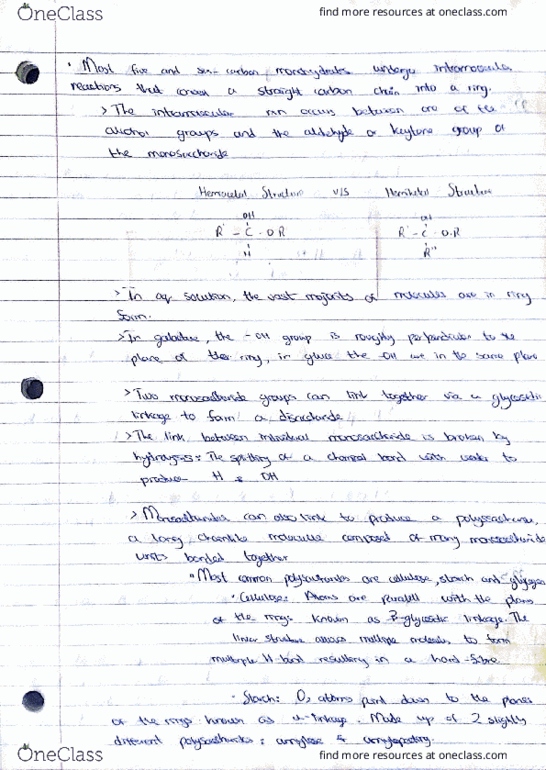 OneClass
find more resources at oneclass.com
· Most five and six-carbon monohydrates undergo intramolecular
reactions that convert a straight carbon chain into a ring.
> The intramolecular rxn occurs between one of the
alcohol groups and the aldehyde or keytone group of
the monosaccharide
Hemiacetal Structure v/s Hemiketal Structure
OH OH
R' - C - OR R' - C - O-R
H R"
> In aq solution, the vast majority of molecules are in ring
form.
> In galactose, the -OH group is roughly perpendicular to the
plane of the ring, in glucose the -OH are in the same plane
> Two monosaccharide groups can link together via a glycosidic
linkage to form a disaccharide
> The link between individual monosaccharide is broken by
hydrolysis: The splitting of a chemical bond with water to
produce H & OH
> Monosaccharides can also link to produce a polysaccharide,
a long chainlike molecule composed of many monosaccharide
units bonded together
· Most common polysaccharides are cellulose, starch and glycogen
· Cellulose: Atoms are parallel with the planes
of the rings known as β-glycosidic linkage. The
linear structure allows multiple molecules to form
multiple H-bond resulting in a hard-fibre
· Starch: O₂ atoms point down to the planes
of the rings known as α-linkage. Made up of 2 slightly
different polysaccharides: amylose & amylopectin.
OneClass
find more resources at oneclass.com